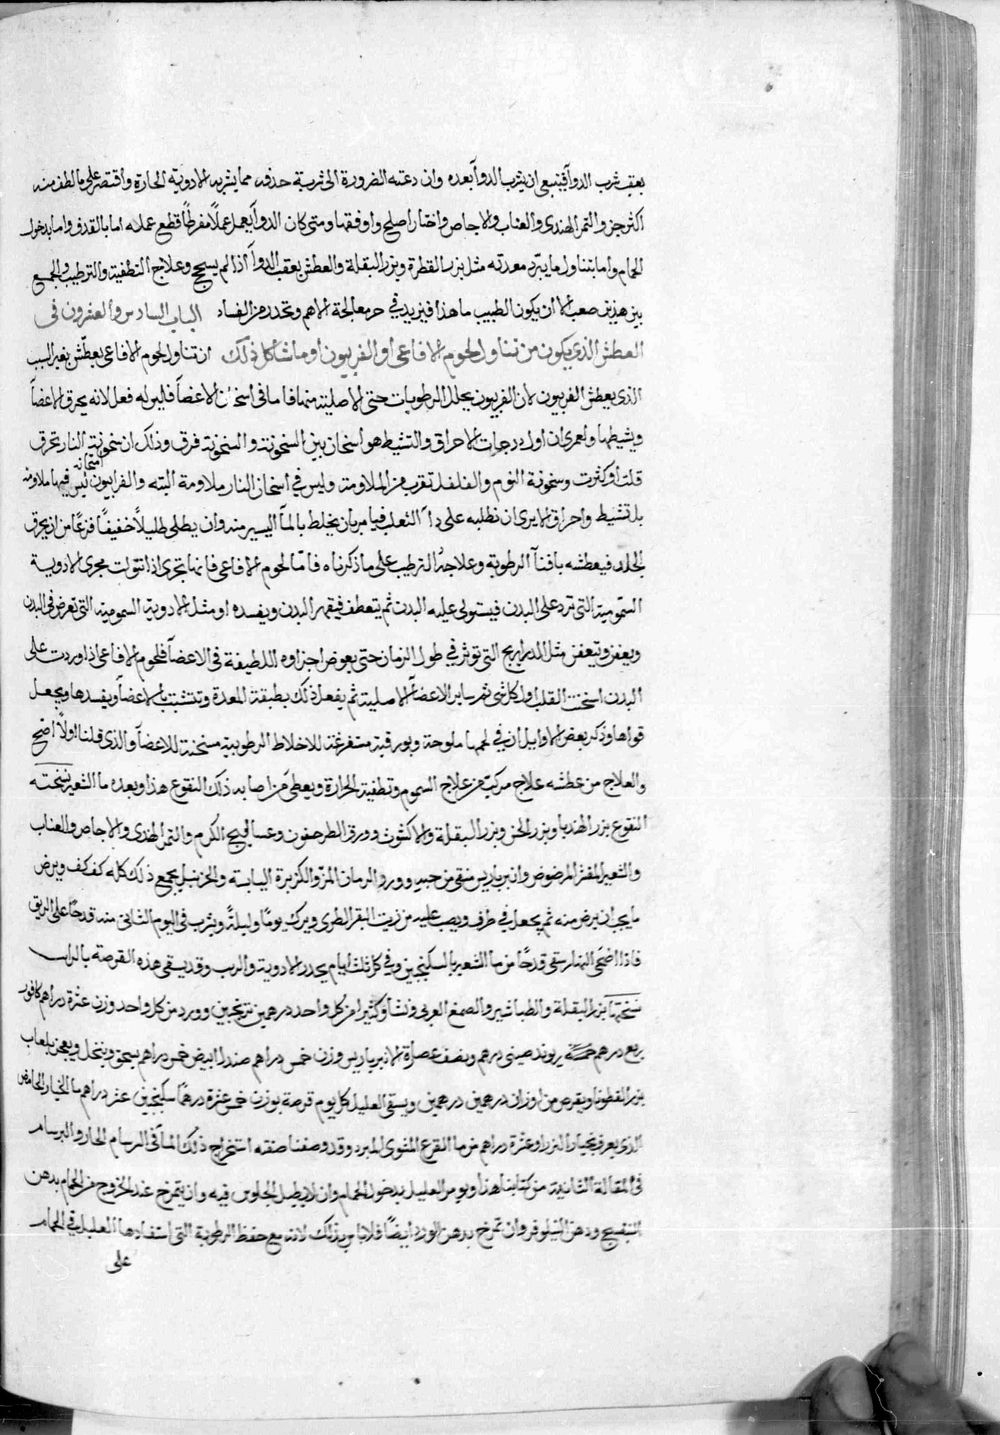 بعقب شرب الدوآ فينبغى ان يشرب الدوآ بعده وان دعته الضرورة الى شربة حذف مما يشربه الادوية الحارة واقتصر على ما لطف منه
اكثر والتمر الهندى والعناب والاجاص واختار اصلح واوفقها ومتى كان الدوآ يعمل عملًا مفرطًا قطع عمله اما بالقذف واما بدخول
الحمام واما بتناول ما يبرد معدته مثل بزر القطونة وبزر البقلة والعطش بعقب الدوآ اذا لم يسهج وعلاج التطفية والترطيب والجمع
بين هذين صعب الا ان يكون الطبيب ماهذا فيزيد فى معالجة الاهم وتحذر من الفساد الباب السادس والعشرون فى
العطش الذى يكون من تناول لحوم الافاعى او الفربيون او ما شاكل ذلك ان تناول لحوم الافاعى يعطش بغير السبب
الذى يعطش الفربيون لان الفربيون يحلل الرطوبات حتى الاصلية منها فاما فى اسخان الاعضآ فاليس له فعل لانه يحرق الاعضآ
ويشيطها ولعمرى ان اول درجات الاحراق والتشيط هو اسخان بين السخونة والسخونة فرق وذلك ان سخونة النار تحرق
قلت او كثرت وسخونة الثوم والفلفل تقرب من الملاومة وليس فى اسخان النار ملاومة البته والفرابيون ليس فيها ملاومة
بل تشيط واحراق الا يرى ان نطلبه على دآ الثعلب فيامر بان يخلط بالمآ اليسير منه وان يطلى طليلًا خفيفًا فزعًا من ان يحرق
الجلد فيعطشه بافنآ الرطوبة وعلاجهُ الترطيب على ما ذكرناه فامّا لحوم الافاعى فانها تجرى اذا تنوولت مجرى الادوية
السّمومية التى ترد على البدن فيستولى عليه البدن ثم تعطف فيقهر البدن ويفسده او مثل الادوية السمومية التى تعرض فى البدن
ويعفن وتتعفن مثل الدراريح التى توثر فى طول الزمان حتى يعوض اجزاوه اللطيفة فى الاعضآ فلحوم الافاعى اذا وردت على
البدن اسخنت القلب اول كل شى ثم ساير الاعضآ الاصلية ثم يفعل ذلك بطبقة المعدة وتتشبث بالاعضآ ويفسدها ويجعل
قواها وذكر بعض الاوايل ان فى لحمها ملوحة وبورقية مستفرغة للاخلاط الرطوبية مسخنة للاعضآ والذى قلنا اولًا اصح
والعلاج من عطشه علاج مركب من علاج السموم وتطفية الحرارة ويعطى من اصابه ذلك النقوع هذا وبعده ما الشعير نسخته
النقوع بزر الهندبا وبزر الخس وبزر البقلة والاكشوث وورق الطرخون وعساليج الكرم والتمر الهندى والاجاص والعناب
والشعير المقشر المرضوض وانبرباريس منقى من حبه وورد الرمان المزّ والكزبرة اليابسة والخرنبل يجمع ذلك كله كف كف ويرض
ما يجب ان يرض منه ثم يجعل فى ظرف ويصب عليه من زيت البقر الطرى ويترك يومًا وليلةً ويشرب فى اليوم الثانى منه قدحًا على الريق
فاذا اضحى النهار سقى قدحًا من ما الشعير بالسكنجبين وفى كل ثلث ايام يحذر الادوية والرب وقد يسقى هذه القرصة بالراب
نسختها بزر البقلة والطباشير والصمغ العربى ونشا وكثيرا من كل واحد درهمين ترنجبين وورد من كل واحد وزن عشرة دراهم كافور
ربع درهم ريوند صينى درهم ونصف عصارة الانبرباريس وزن خمس دراهم صندل ابيض خمس دراهم يسحق وينخل ويعجن بلعاب
بزر القطونا ويقرص من اوزان درهمين درهمين ويسقى العليل كل يوم قرصة بوزن خمس عشرة درهمًا سكنجبين عشر دراهم ما الخيار الحامض
الذى يعرف بخيار النزر او عشرة دراهم من ما القرع المشوى المبرد وقد وصفنا صفته استخراج ذلك المآ فى السرسام الحار والبرسام
فى المقالة الثانية من كتابنا هذا ويومر العليل بدخول الحمام وان لا يطيل الجلوس فيه وان يتمرخ عند الخروج من الحمام بدهن
البنفسج ودهن النيلوفر وان تمرخ بدهن الورد ايضًا فلا باس بذلك لانه مع حفظ الرطوبة التى استفادها العليل فى الحمام
على